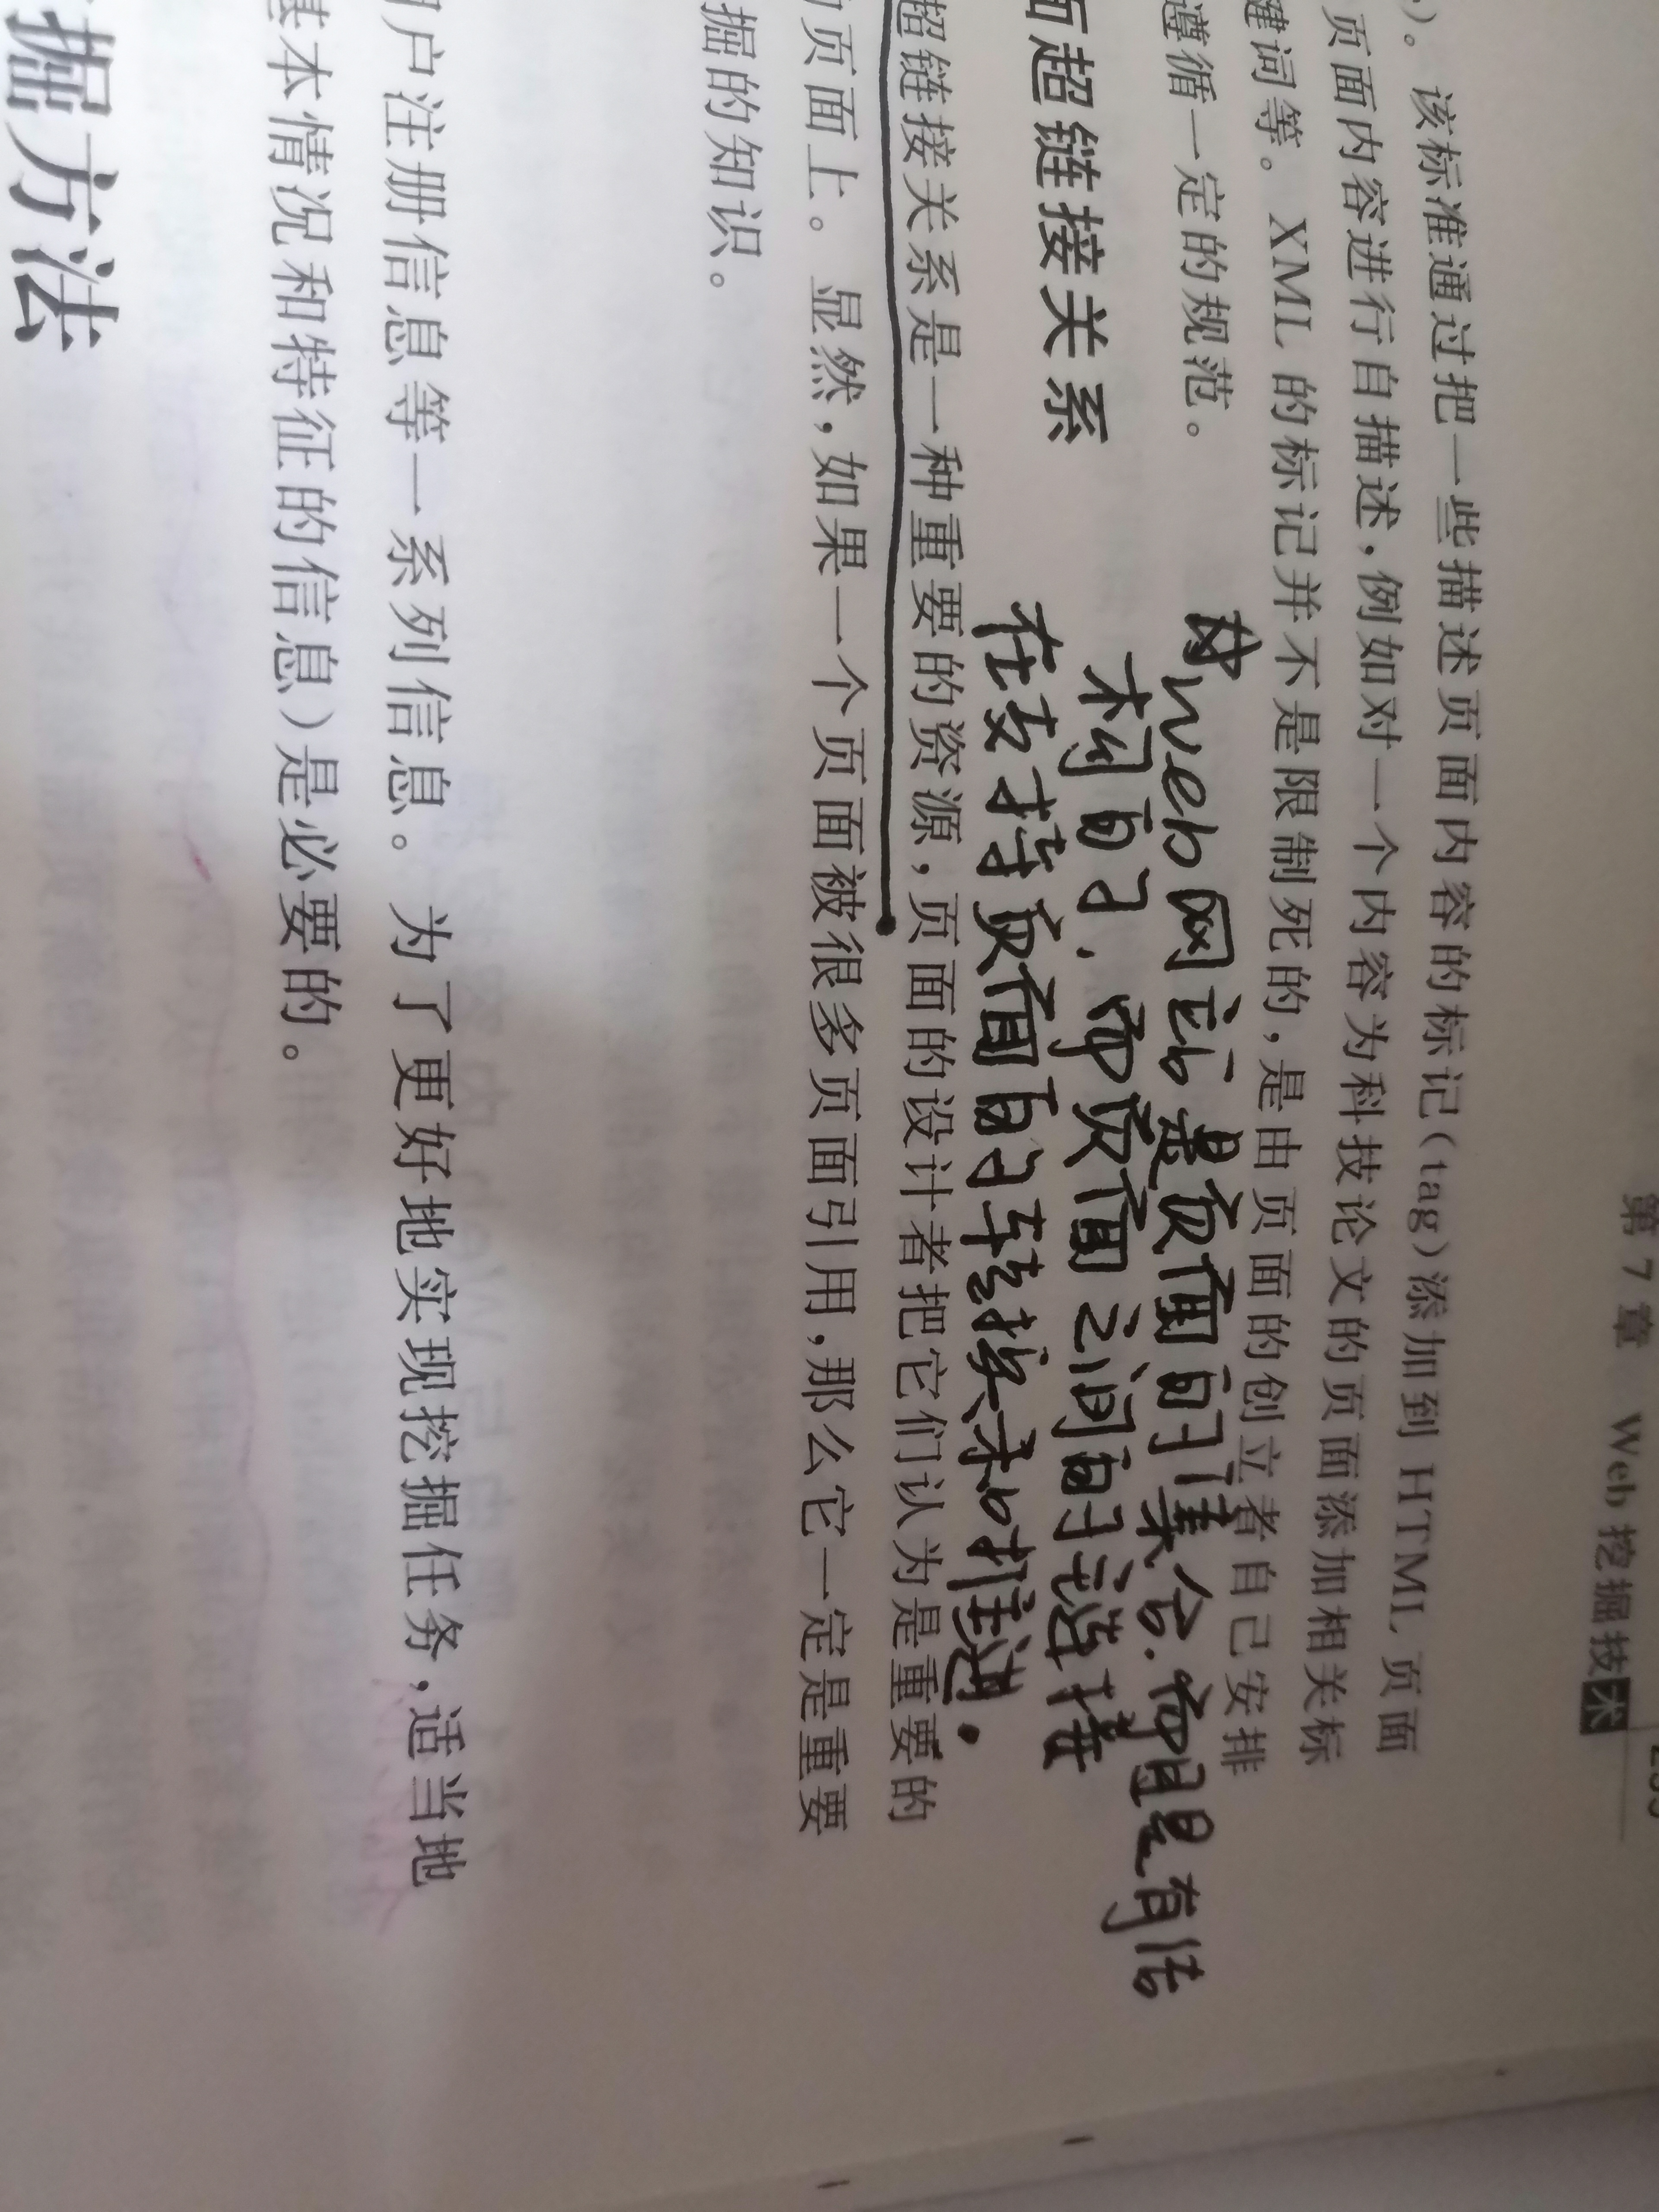 第7章 Web挖掘技术
)。该标准通过把一些描述页面内容的标记(tag)添加到 HTML 页面
页面内容进行自描述,例如对一个内容为科技论文的页面添加相关标
键词等。XML 的标记并不是限制死的,是由页面的创立者自己安排
遵循一定的规范。
web网站是页面的集合.而且是有结
构的,而页面之间的链接
面超链接关系
在支持页面的转换和推进.
超链接关系是一种重要的资源,页面的设计者把它们认为是重要的
页面上。显然,如果一个页面被很多页面引用,那么它一定是重要
掘的知识。
户注册信息等一系列信息。为了更好地实现挖掘任务,适当地
基本情况和特征的信息)是必要的。
掘方法